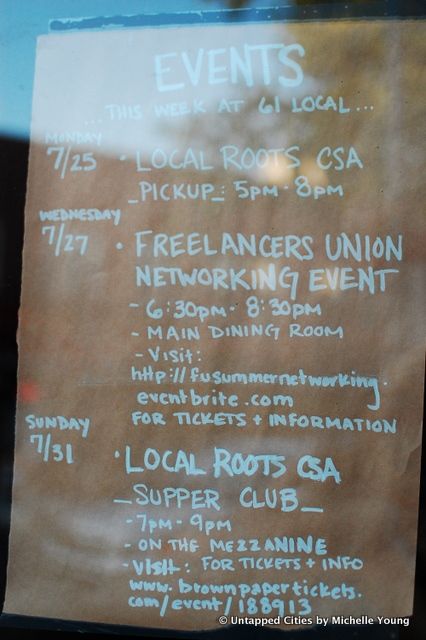 EVENTS
...THIS WEEK AT 61 LOCAL...
MONDAY
7/25 • LOCAL ROOTS CSA
_PICKUP_: 5pm - 8pm
WEDNESDAY
7/27 • FREELANCERS UNION
NETWORKING EVENT
- 6:30pm - 8:30pm
- MAIN DINING ROOM
- VISIT:
http://fusummernetworking.
eventbrite.com
FOR TICKETS + INFORMATION
SUNDAY
7/31 • LOCAL ROOTS CSA
_SUPPER CLUB_
- 7pm - 9pm
- ON THE MEZZANINE
- VISIT: FOR TICKETS + INFO
www.brownpapertickets.
com/event/188913
© Untapped Cities by Michelle Young